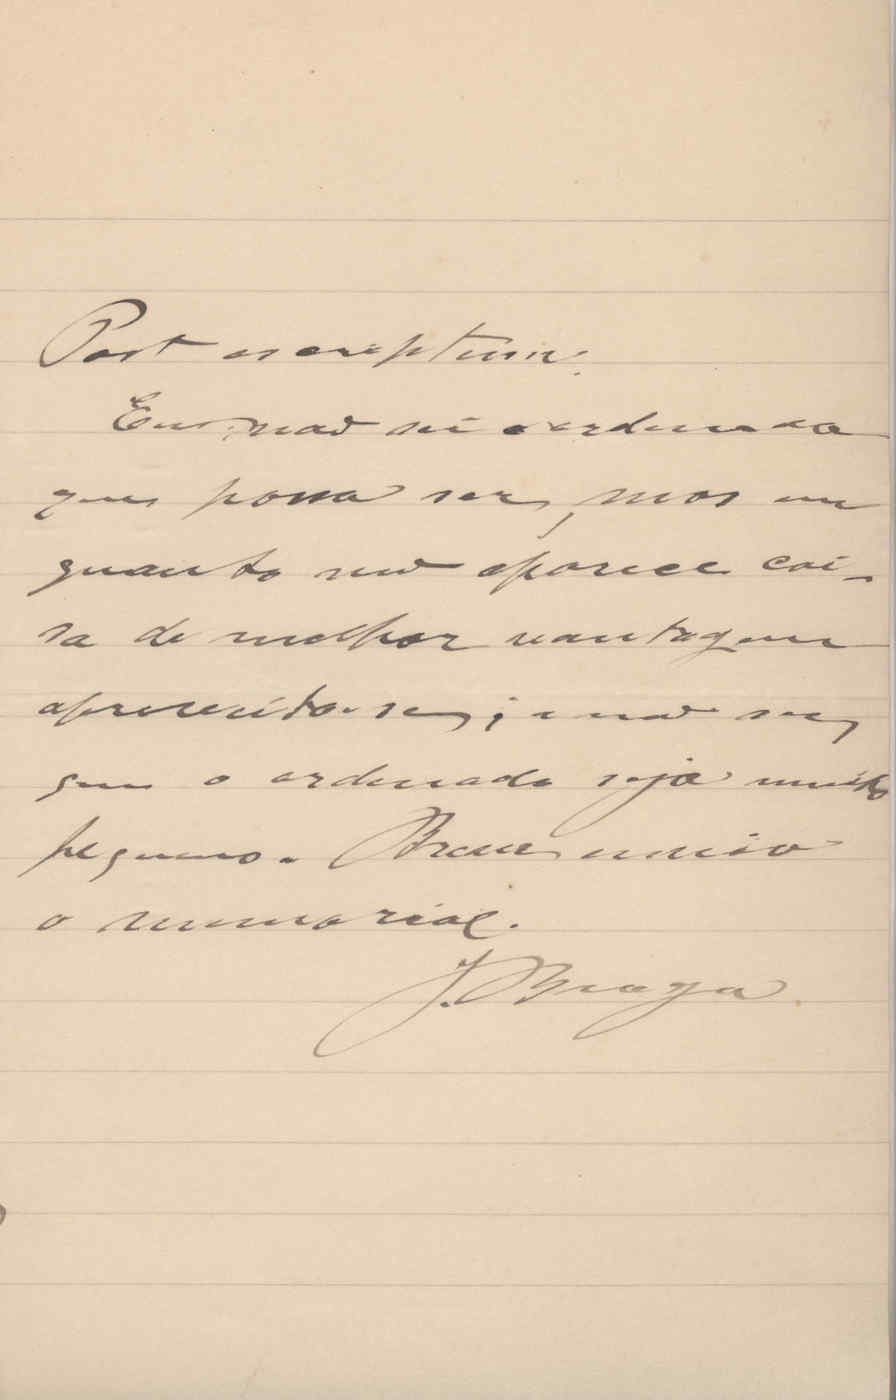 Post escriptum.
Eu não sei o ordenado
que possa ser, mas em
quanto não aparece coi-
sa de melhor vantagem
aproveita-se; e não
que o ordenado seja muito
pequeno. Breve envio
o memorial.
J. Braga